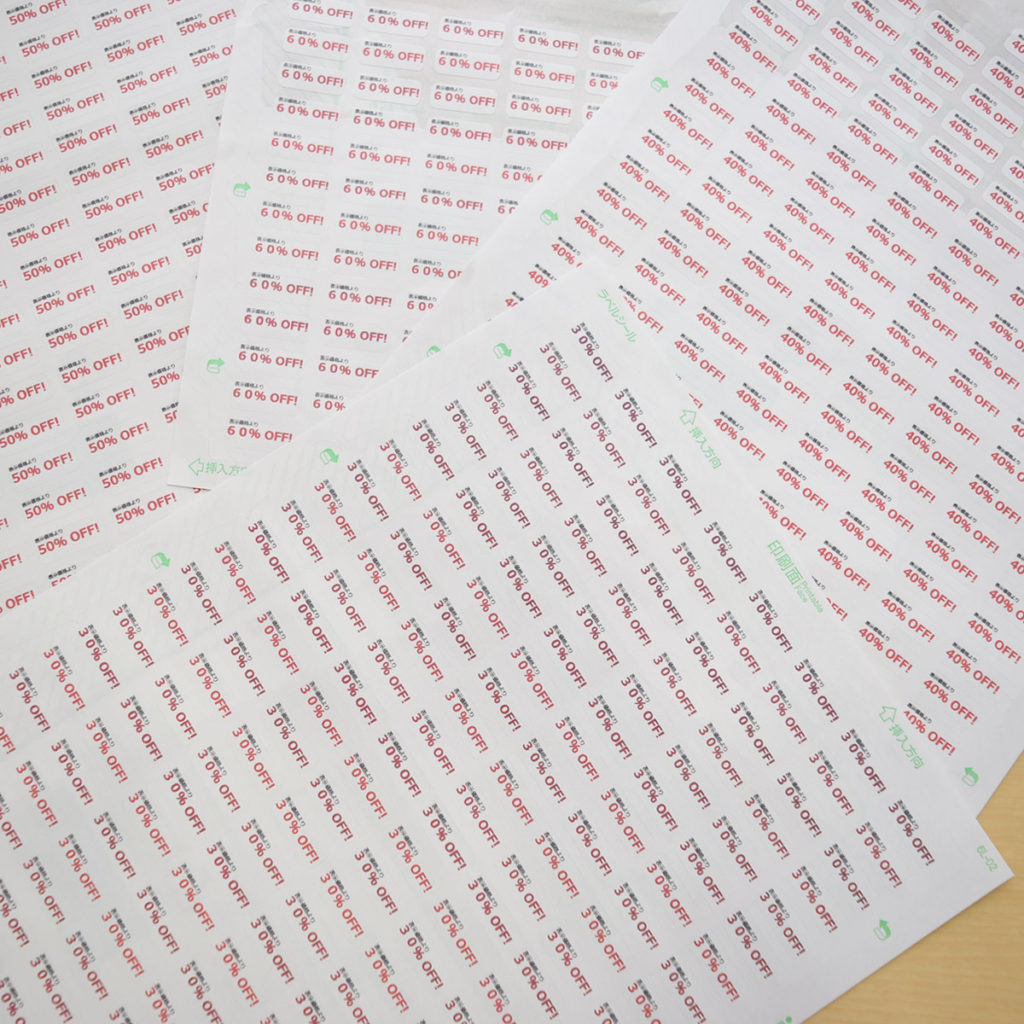 表示価格より
50% OFF!
表示価格より
60% OFF!
表示価格より
40% OFF!
表示価格より
30% OFF!
ラベルシール
挿入方向
挿入方向
印刷面
Printable
Face
挿入方向
EL-02